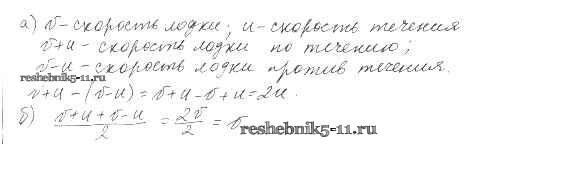 а) v - скорость лодки; u - скорость течения
v+u - скорость лодки по течению;
v-u - скорость лодки против течения.
reshebnik5-11.ru
v+u-(v-u)=v+u-v+u=2u.
б) (v+u+v-u)/2 = 2v/2 = v
reshebnik5-11.ru